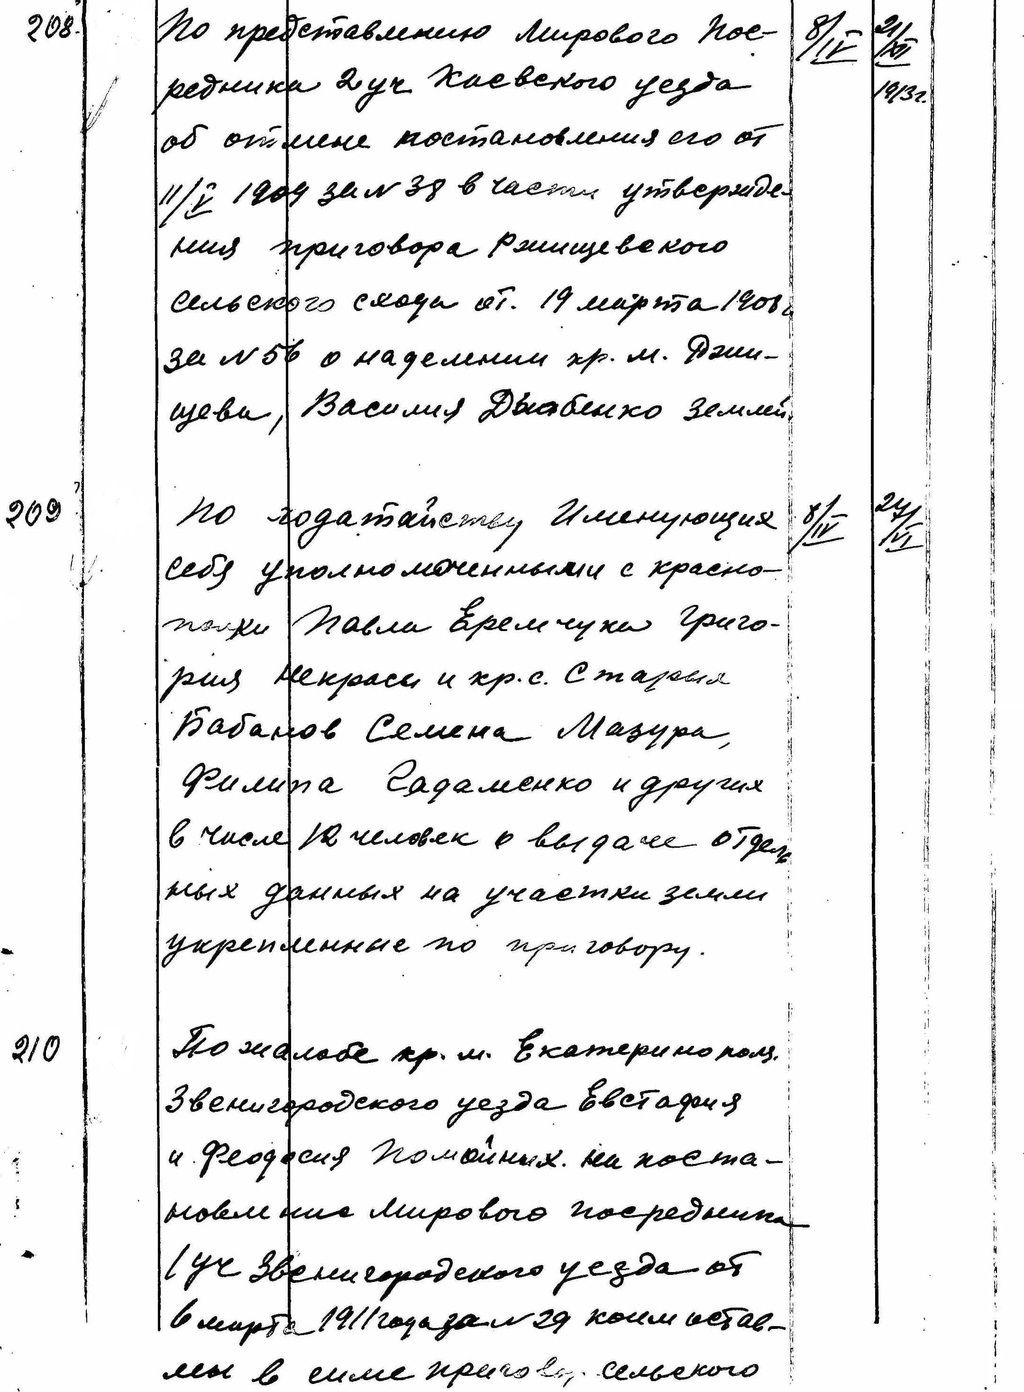 208. По представлению Мирового Пос- 8/IV 21/XII
редника 2 уч Киевского уезда 1913г.
об отмене постановления его от
11/V 1909 за N 38 в части утвержде-
ния приговора Ржищевского
сельского схода от. 19 марта 1908г
за N 56 о наделении кр. м. Ржи-
щева, Василия Дзюбенко землей.
209 По ходатайству Именующих 8/IV 24/VI
себя уполномоченными с красно-
полки Павла Еремчука Григо-
рия Некрасы и кр. с. Старых
Бабанов Семена Мазура,
Филипа Гадаменко и других
в числе 12 человек о выдаче отдель
ных данных на участки земли
укрепленные по приговору.
210 По жалобе кр. м. Екатеринопол.
Звенигородского уезда Евстафия
и Феодосия Помойных. на поста-
новление Мирового посредника
1 уч Звенигородского уезда от
6 марта 1911 года за N 29 коим остав-
лен в силе приговор сельского